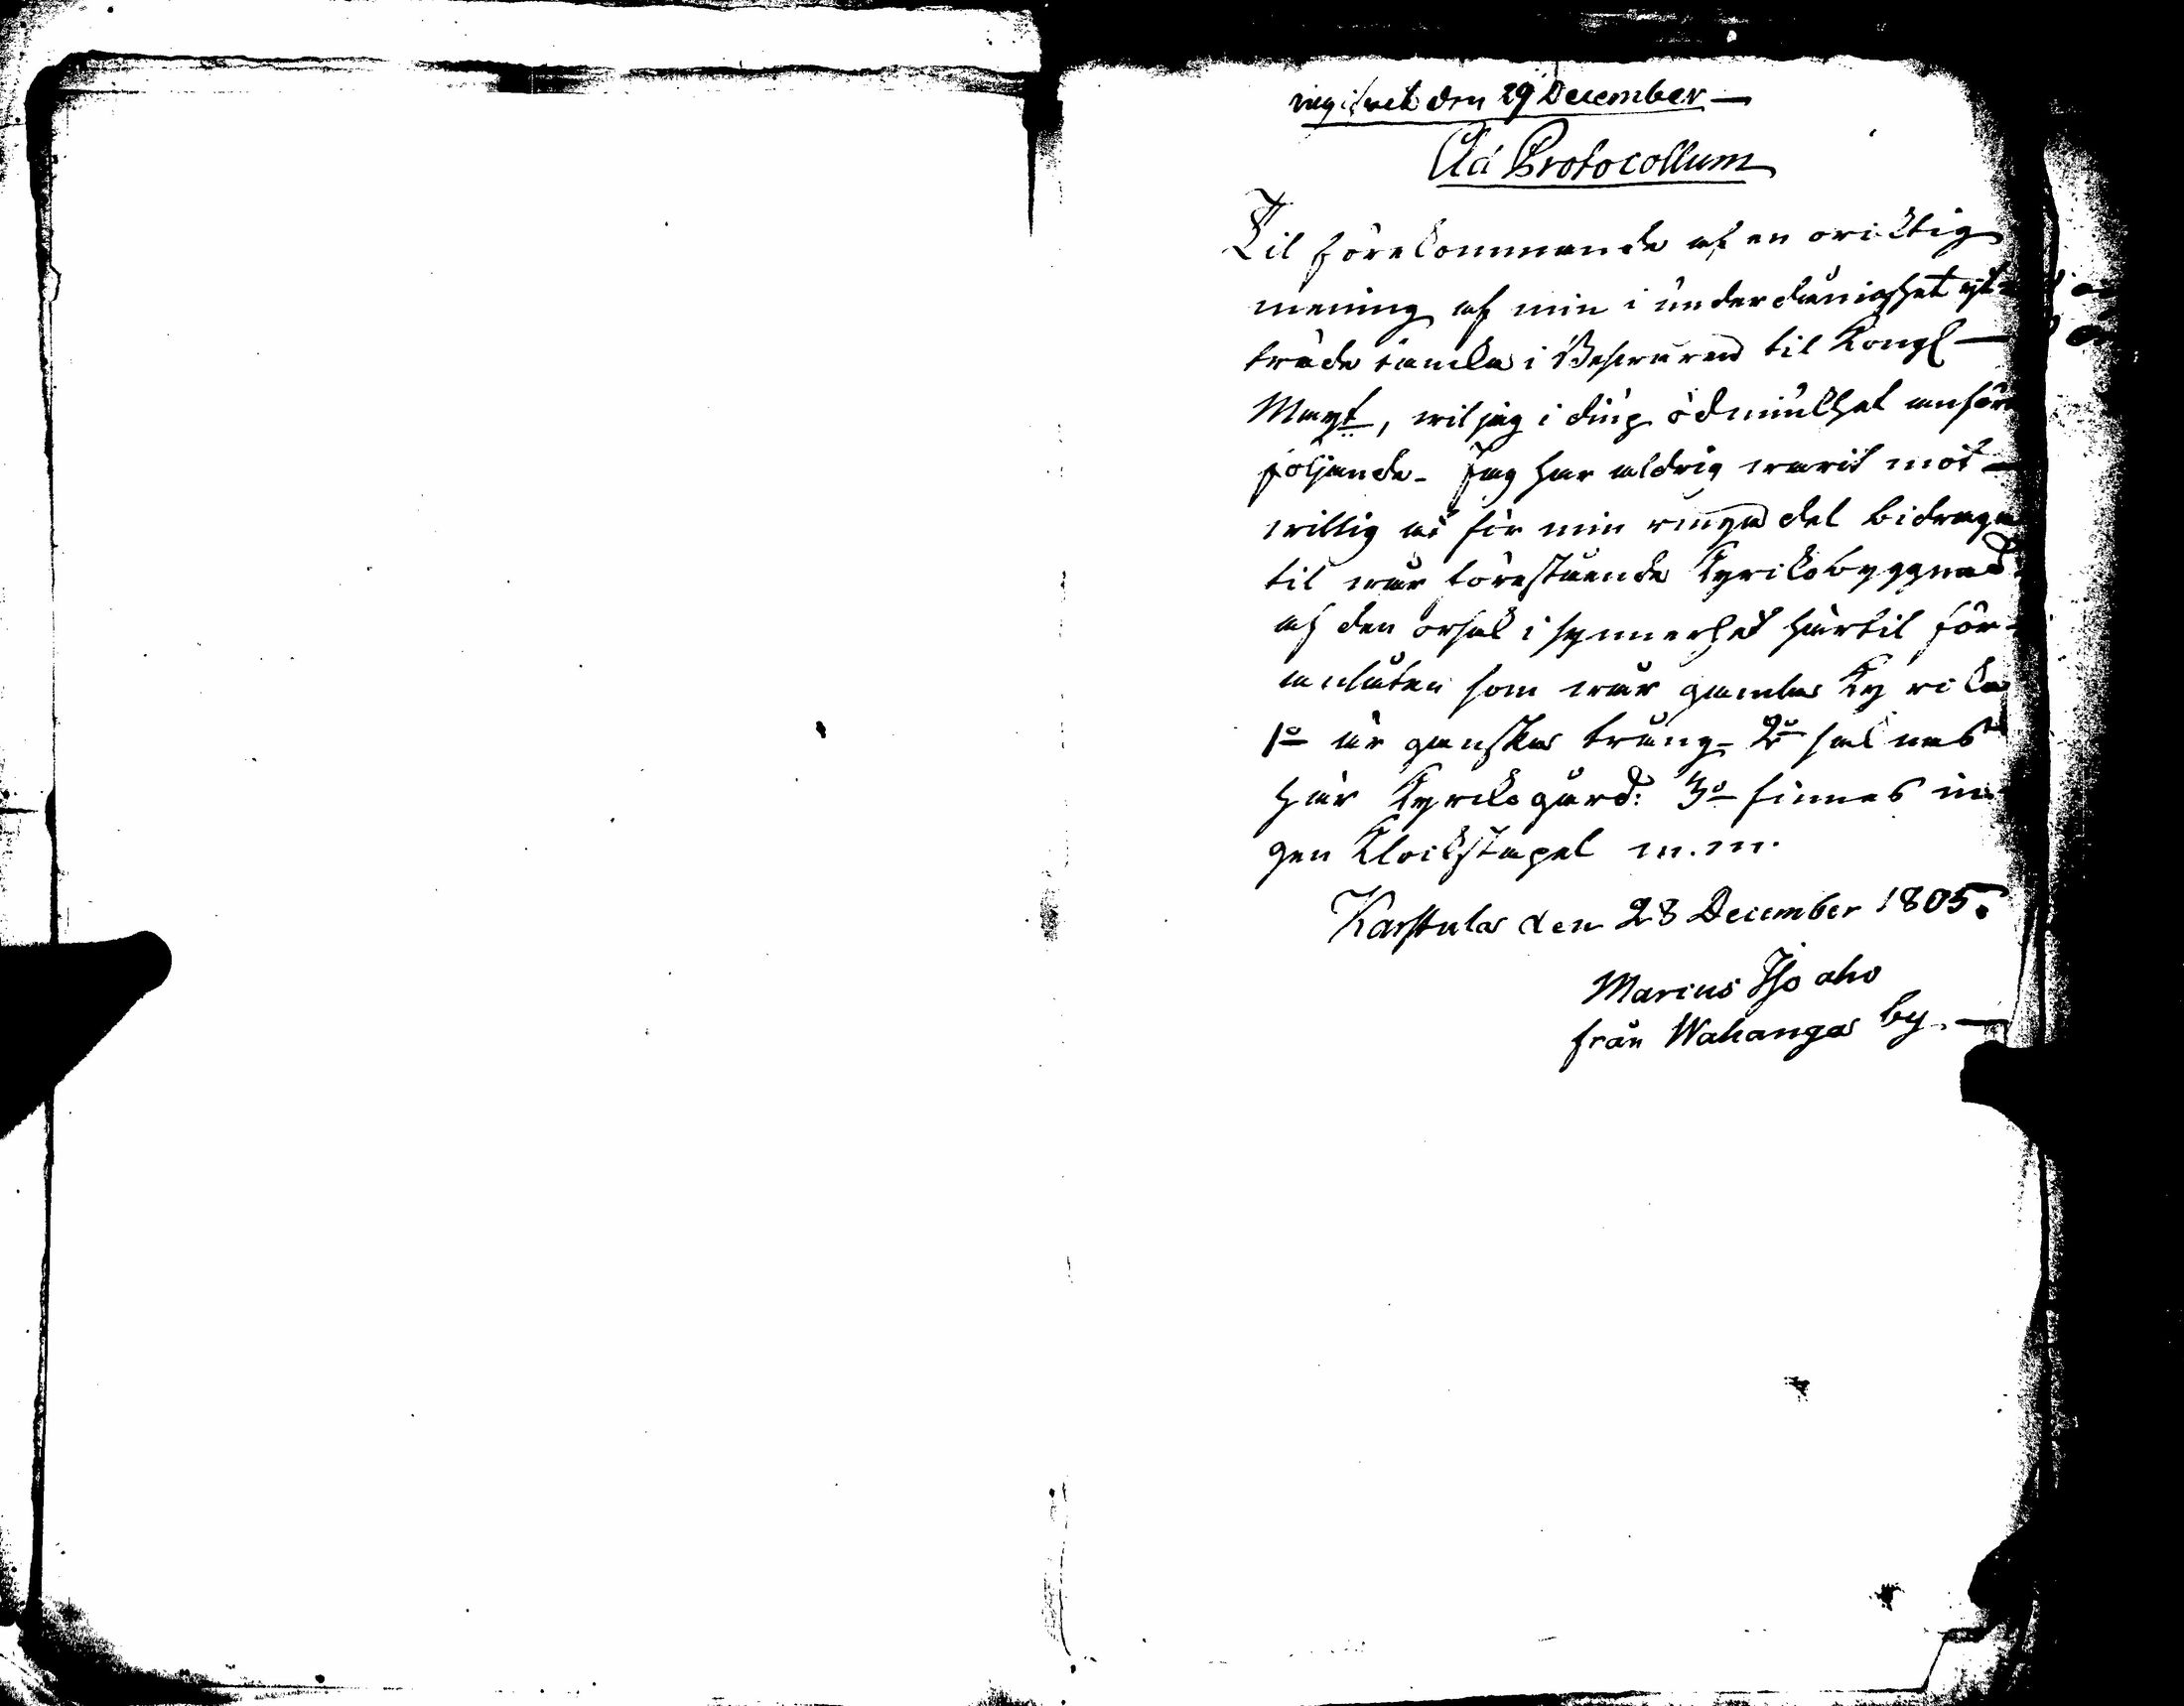 ingifvet den 29 December —
Ad Protocollum
Til förekommande af en oricktig
mening af min i underdånighet yt-
trade tancka i Beswären til Kongl —
Mayt, wil jag i diup ödmiukhet anföra
följande. Jag har aldrig warit mot-
willig at för min ringa del bidraga
til wår förestående Kyrckobyggnad
af den orsak i synnerhet härtil för-
anlåten som wår gamla Kyrcka
1o är ganska trång. 2o saknas
här Kyrckogård: 3o finnes in-
gen Klockstapel m.m.
Karstula den 28 December 1805.
Marcus Iso aho
från Wahanga by. —